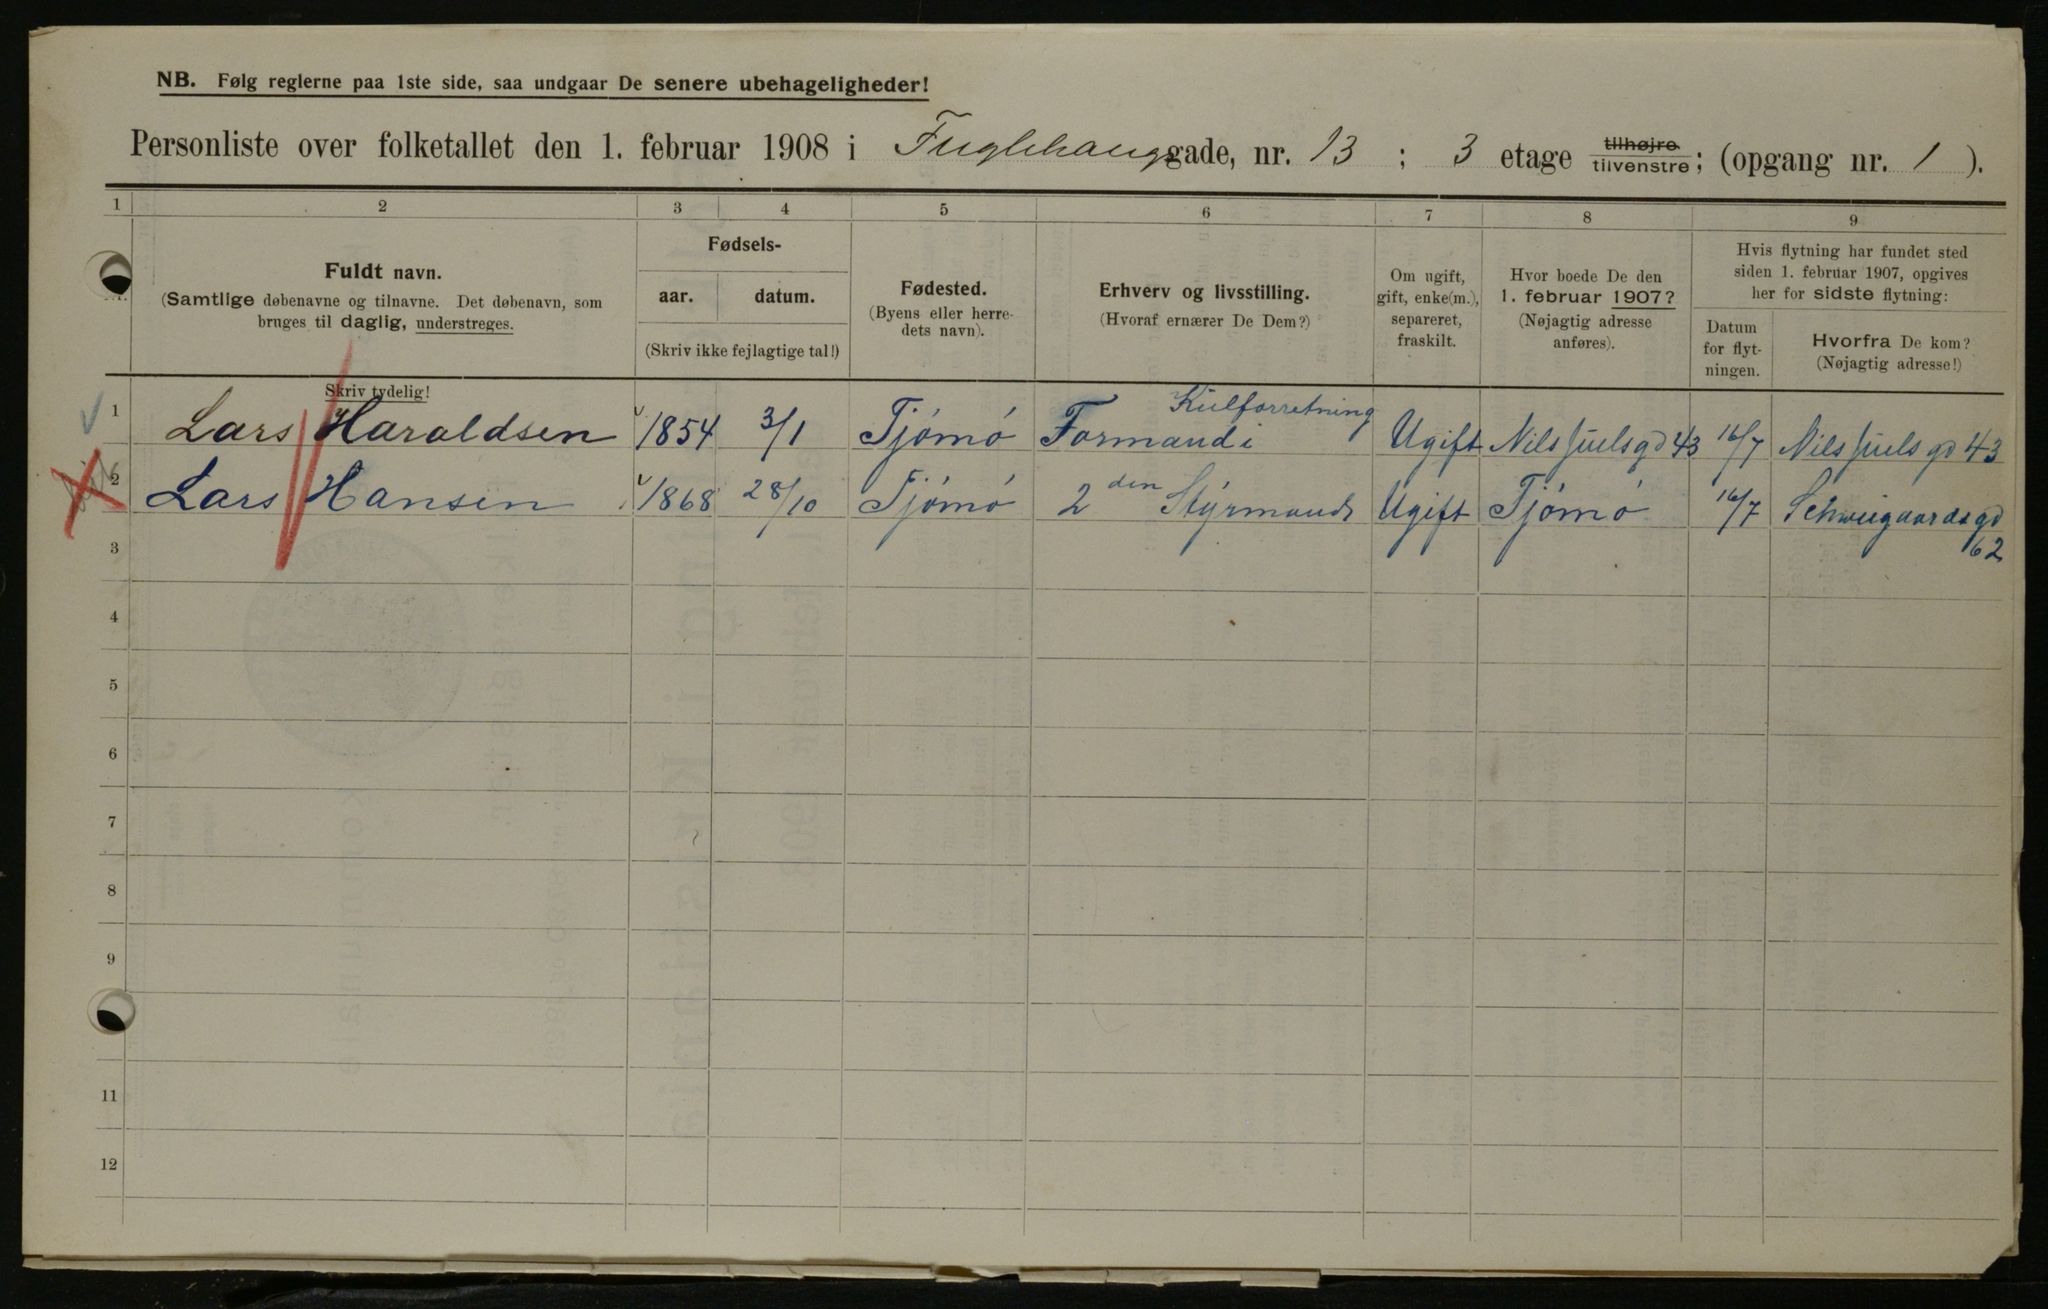 NB. Følg reglerne paa 1ste side, saa undgaar De senere ubehageligheder!
Personliste over folketallet den 1. februar 1908 i Fuglehauggade, nr. 13 ; 3 etage tilhøjre tilvenstre; (opgang nr. 1 ).
1 2 3 4 5 6 7 8 9
Fuldt navn.
(Samtlige døbenavne og tilnavne. Det døbenavn, som
bruges til daglig, understreges.
Skriv tydelig!
Fødsels-
aar. datum.
(Skriv ikke fejlagtige tal!)
Fødested.
(Byens eller herre-
dets navn).
Erhverv og livsstilling.
(Hvoraf ernærer De Dem?)
Om ugift,
gift, enke(m.),
separeret,
fraskilt.
Hvor boede De den
1. februar 1907?
(Nøjagtig adresse
anføres).
Hvis flytning har fundet sted
siden 1. februar 1907, opgives
her for sidste flytning:
Datum
for flyt-
ningen.
Hvorfra De kom?
(Nøjagtig adresse!)
Kulforretning
1 Lars Haraldsen 1854 3/1 Tjömö Formand i Ugift Nils Juelsgd 43 16/7 Nils Juels gd 43
2 Lars Hansen 1868 28/10 Tjömö 2 den Styrmand Ugift Tjömö 16/7 Schweigaardsgd
62
3
4
5
6
7
8
9
11
12